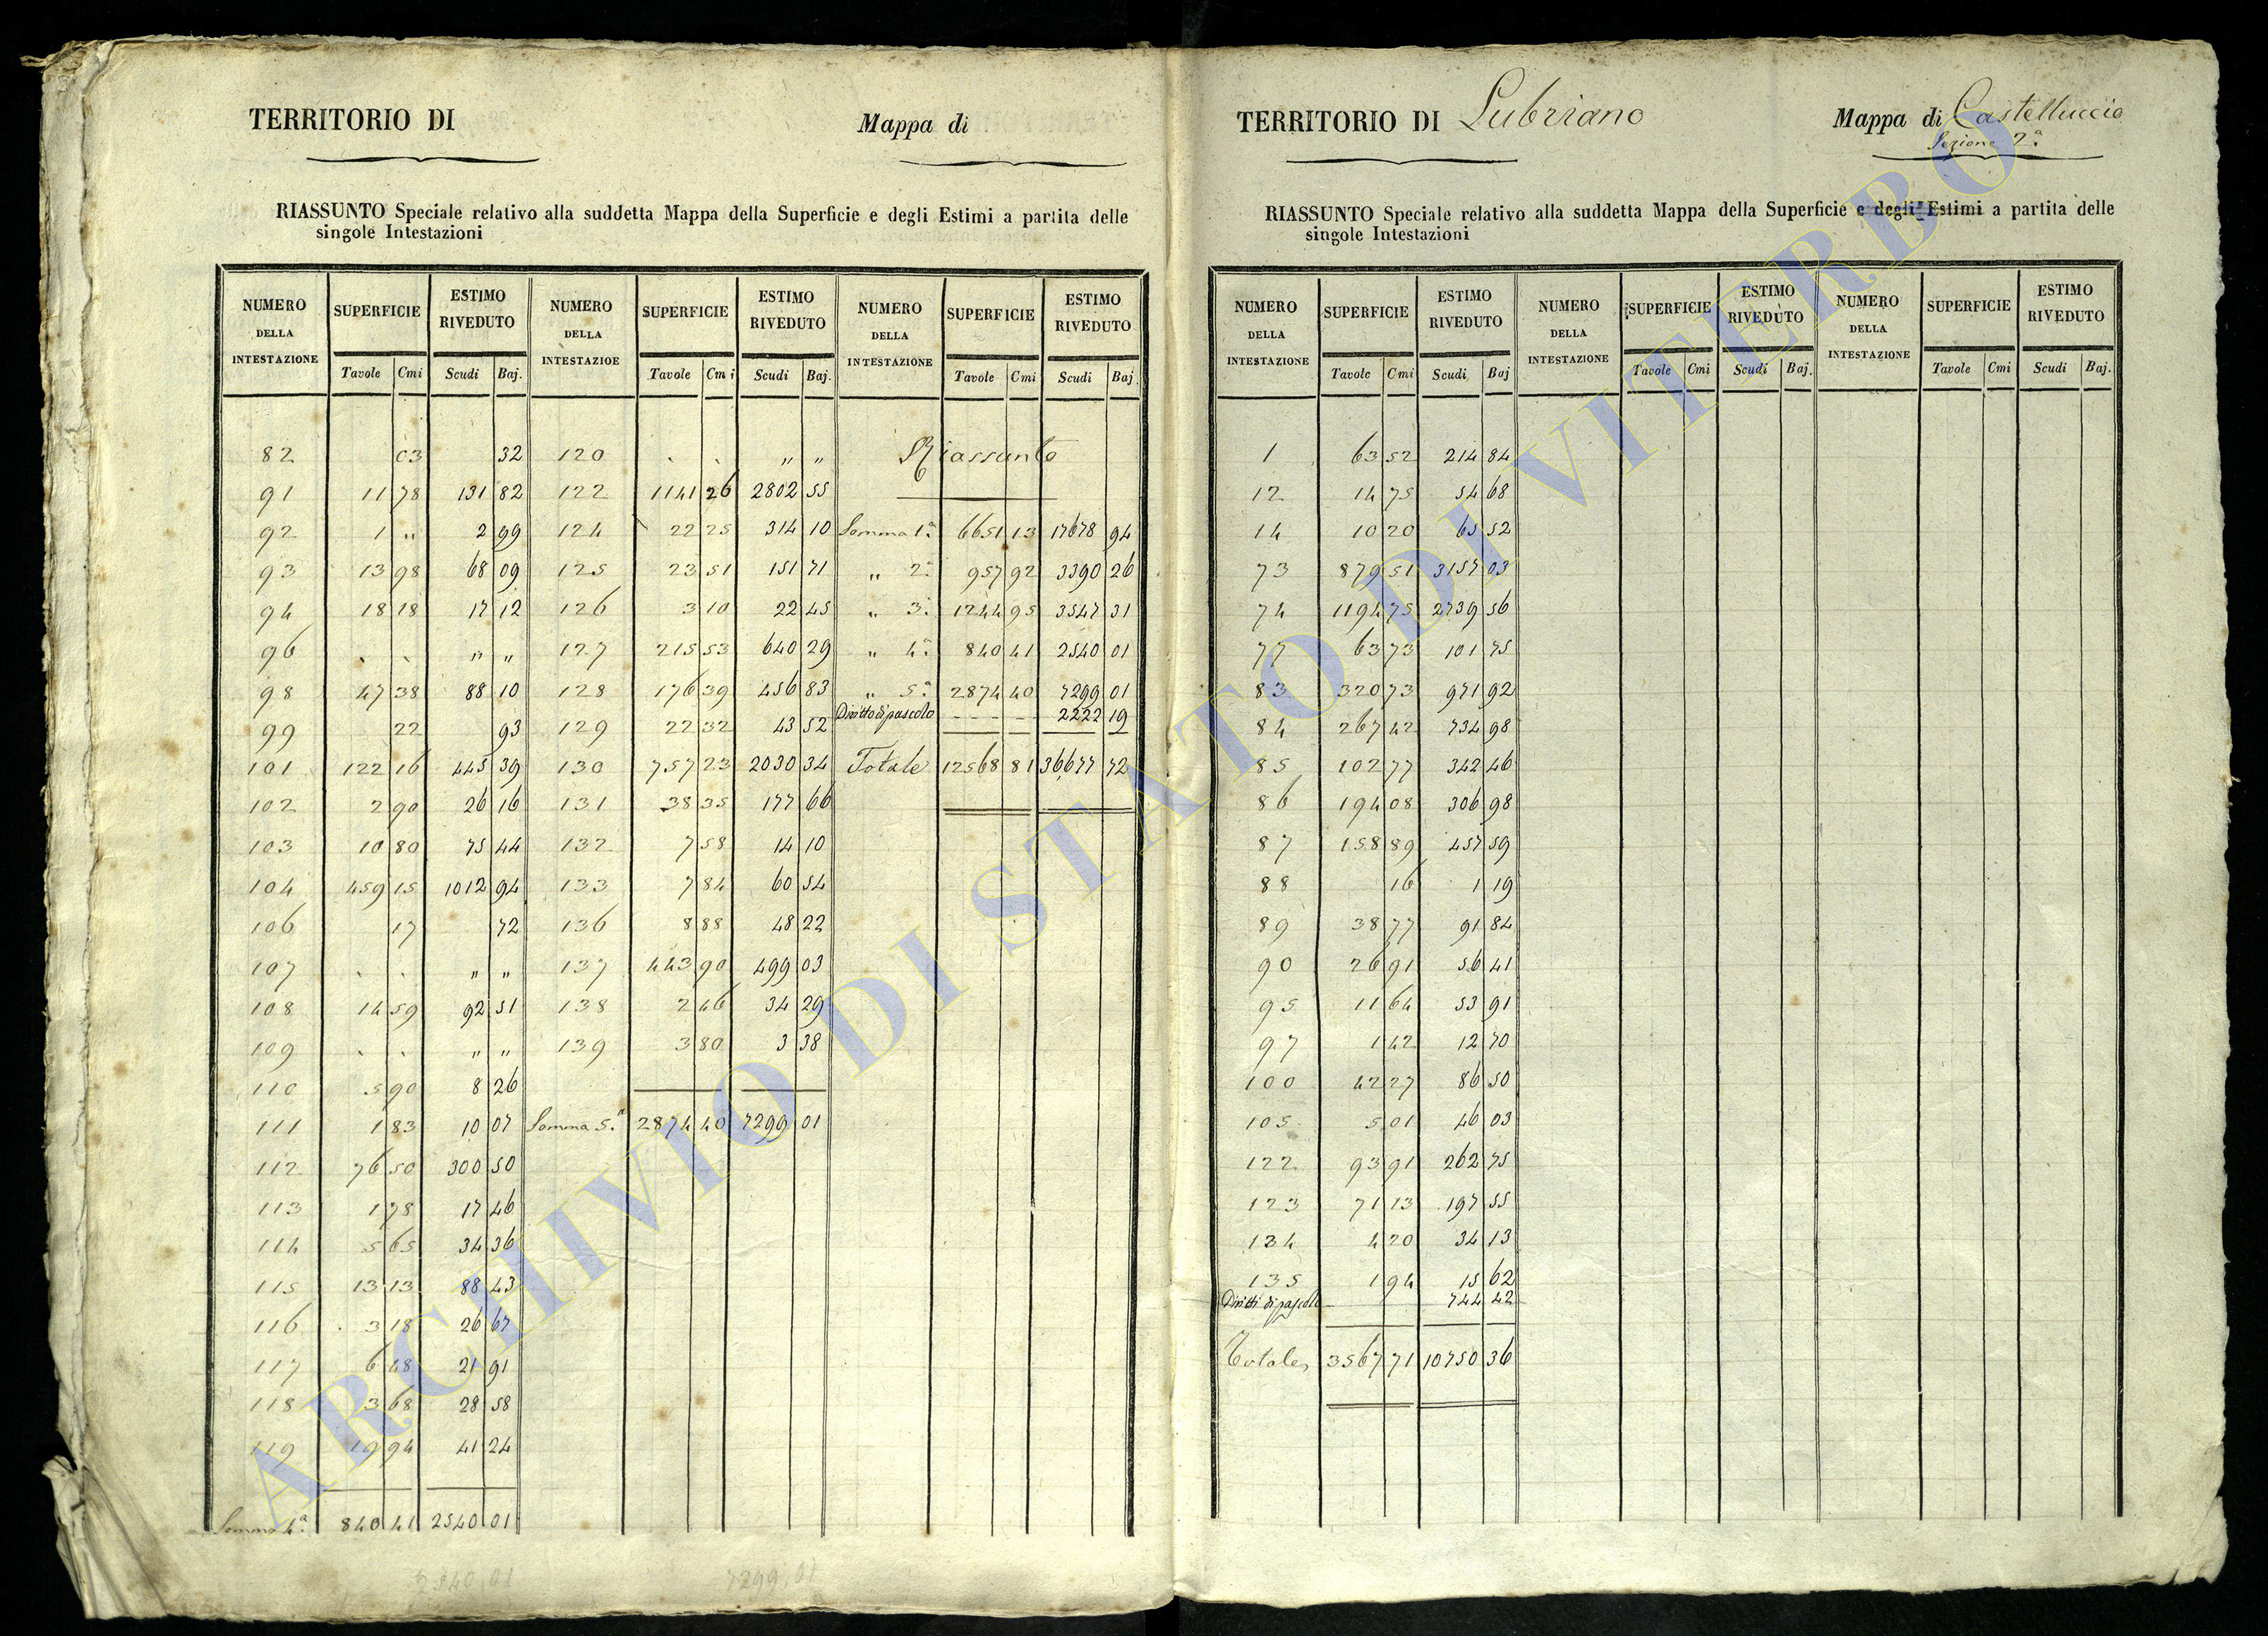 TERRITORIO DI
Mappa di
RIASSUNTO Speciale relativo alla suddetta Mappa della Superficie e degli Estimi a partita delle
singole Intestazioni
NUMERO DELLA INTESTAZIONE SUPERFICIE ESTIMO RIVEDUTO NUMERO DELLA INTESTAZIOE SUPERFICIE ESTIMO RIVEDUTO NUMERO DELLA INTESTAZIONE SUPERFICIE ESTIMO RIVEDUTO
Tavole Cmi Scudi Baj. Tavole Cmi Scudi Baj. Tavole Cmi Scudi Baj.
82 03 32 120 . . " " Riassunto
91 11 78 131 82 122 1141 26 2802 55
92 1 " 2 99 124 22 25 314 10 Somma 1ª 6651 13 17678 94
93 13 98 68 09 125 23 51 151 71 " 2ª 957 92 3390 26
94 18 18 17 12 126 3 10 22 45 " 3ª 1244 95 3547 31
96 . . " " 127 215 53 640 29 " 4ª 840 41 2540 01
98 47 38 88 10 128 176 39 456 83 " 5ª 2874 40 7299 01
Diritto di pascolo - - - - 2222 19
99 22 93 129 22 32 43 52
101 122 16 445 39 130 757 23 2030 34 Totale 12568 81 36677 72
102 2 90 26 16 131 38 35 177 66
103 10 80 75 44 132 7 58 14 10
104 459 15 1012 94 133 7 84 60 54
106 17 72 136 8 88 48 22
107 . . " " 137 443 90 499 03
108 14 59 92 51 138 2 46 34 29
109 . . " " 139 3 80 3 38
110 5 90 8 26
111 1 83 10 07 Somma 5ª 2874 40 7299 01
112 76 50 300 50
113 1 78 17 46
114 5 65 34 36
115 13 13 88 43
116 3 18 26 67
117 6 48 21 91
118 3 68 28 58
119 19 94 41 24
Somma 4ª 840 41 2540 01
2540 01 7299 01
TERRITORIO DI Lubriano
Mappa di Castelluccio
Sezione 2ª
RIASSUNTO Speciale relativo alla suddetta Mappa della Superficie e degli Estimi a partita delle
singole Intestazioni
NUMERO DELLA INTESTAZIONE SUPERFICIE ESTIMO RIVEDUTO NUMERO DELLA INTESTAZIONE SUPERFICIE ESTIMO RIVEDUTO NUMERO DELLA INTESTAZIONE SUPERFICIE ESTIMO RIVEDUTO
Tavole Cmi Scudi Baj Tavole Cmi Scudi Baj. Tavole Cmi Scudi Baj.
1 63 52 214 84
12 14 75 54 68
14 10 20 65 52
73 879 51 3157 03
74 1194 75 2739 56
77 63 73 101 75
83 320 73 971 92
84 267 42 734 98
85 102 77 342 46
86 194 08 306 98
87 158 89 457 59
88 16 1 19
89 38 77 91 84
90 26 91 56 41
95 11 64 53 91
97 1 42 12 70
100 42 27 86 50
105 5 01 46 03
122 93 91 262 75
123 71 13 197 55
134 4 20 34 13
135 1 94 15 62
Diritti di pascolo 744 42
Totale 3567 71 10750 36
ARCHIVIO DI STATO DI VITERBO